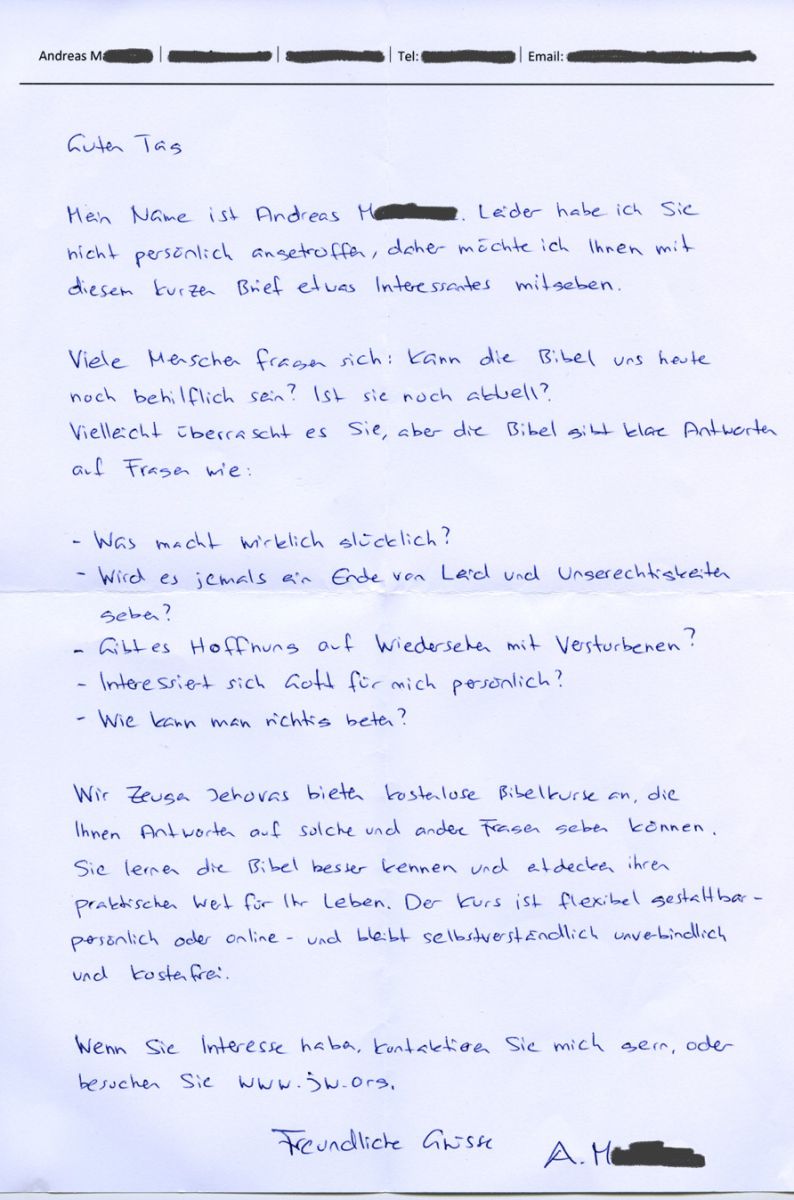 Andreas M | | | Tel: | Email:
Guten Tag
Mein Name ist Andreas M . Leider habe ich Sie
nicht persönlich angetroffen, daher möchte ich Ihnen mit
diesem kurzen Brief etwas Interessantes mitgeben.
Viele Menschen fragen sich: Kann die Bibel uns heute
noch behilflich sein? Ist sie noch aktuell?
Vielleicht überrascht es Sie, aber die Bibel gibt klare Antworten
auf Fragen wie:
- Was macht wirklich glücklich?
- Wird es jemals ein Ende von Leid und Ungerechtigkeiten
geben?
- Gibt es Hoffnung auf Wiedersehen mit Verstorbenen?
- Interessiert sich Gott für mich persönlich?
- Wie kann man richtig beten?
Wir Zeugen Jehovas bieten kostenlose Bibelkurse an, die
Ihnen Antworten auf solche und andere Fragen geben können.
Sie lernen die Bibel besser kennen und entdecken ihren
praktischen Wert für Ihr Leben. Der Kurs ist flexibel gestaltbar -
persönlich oder online - und bleibt selbstverständlich unverbindlich
und kostenfrei.
Wenn Sie Interesse haben, kontaktieren Sie mich gern, oder
besuchen Sie www.jw.org.
Freundliche Grüsse A. M